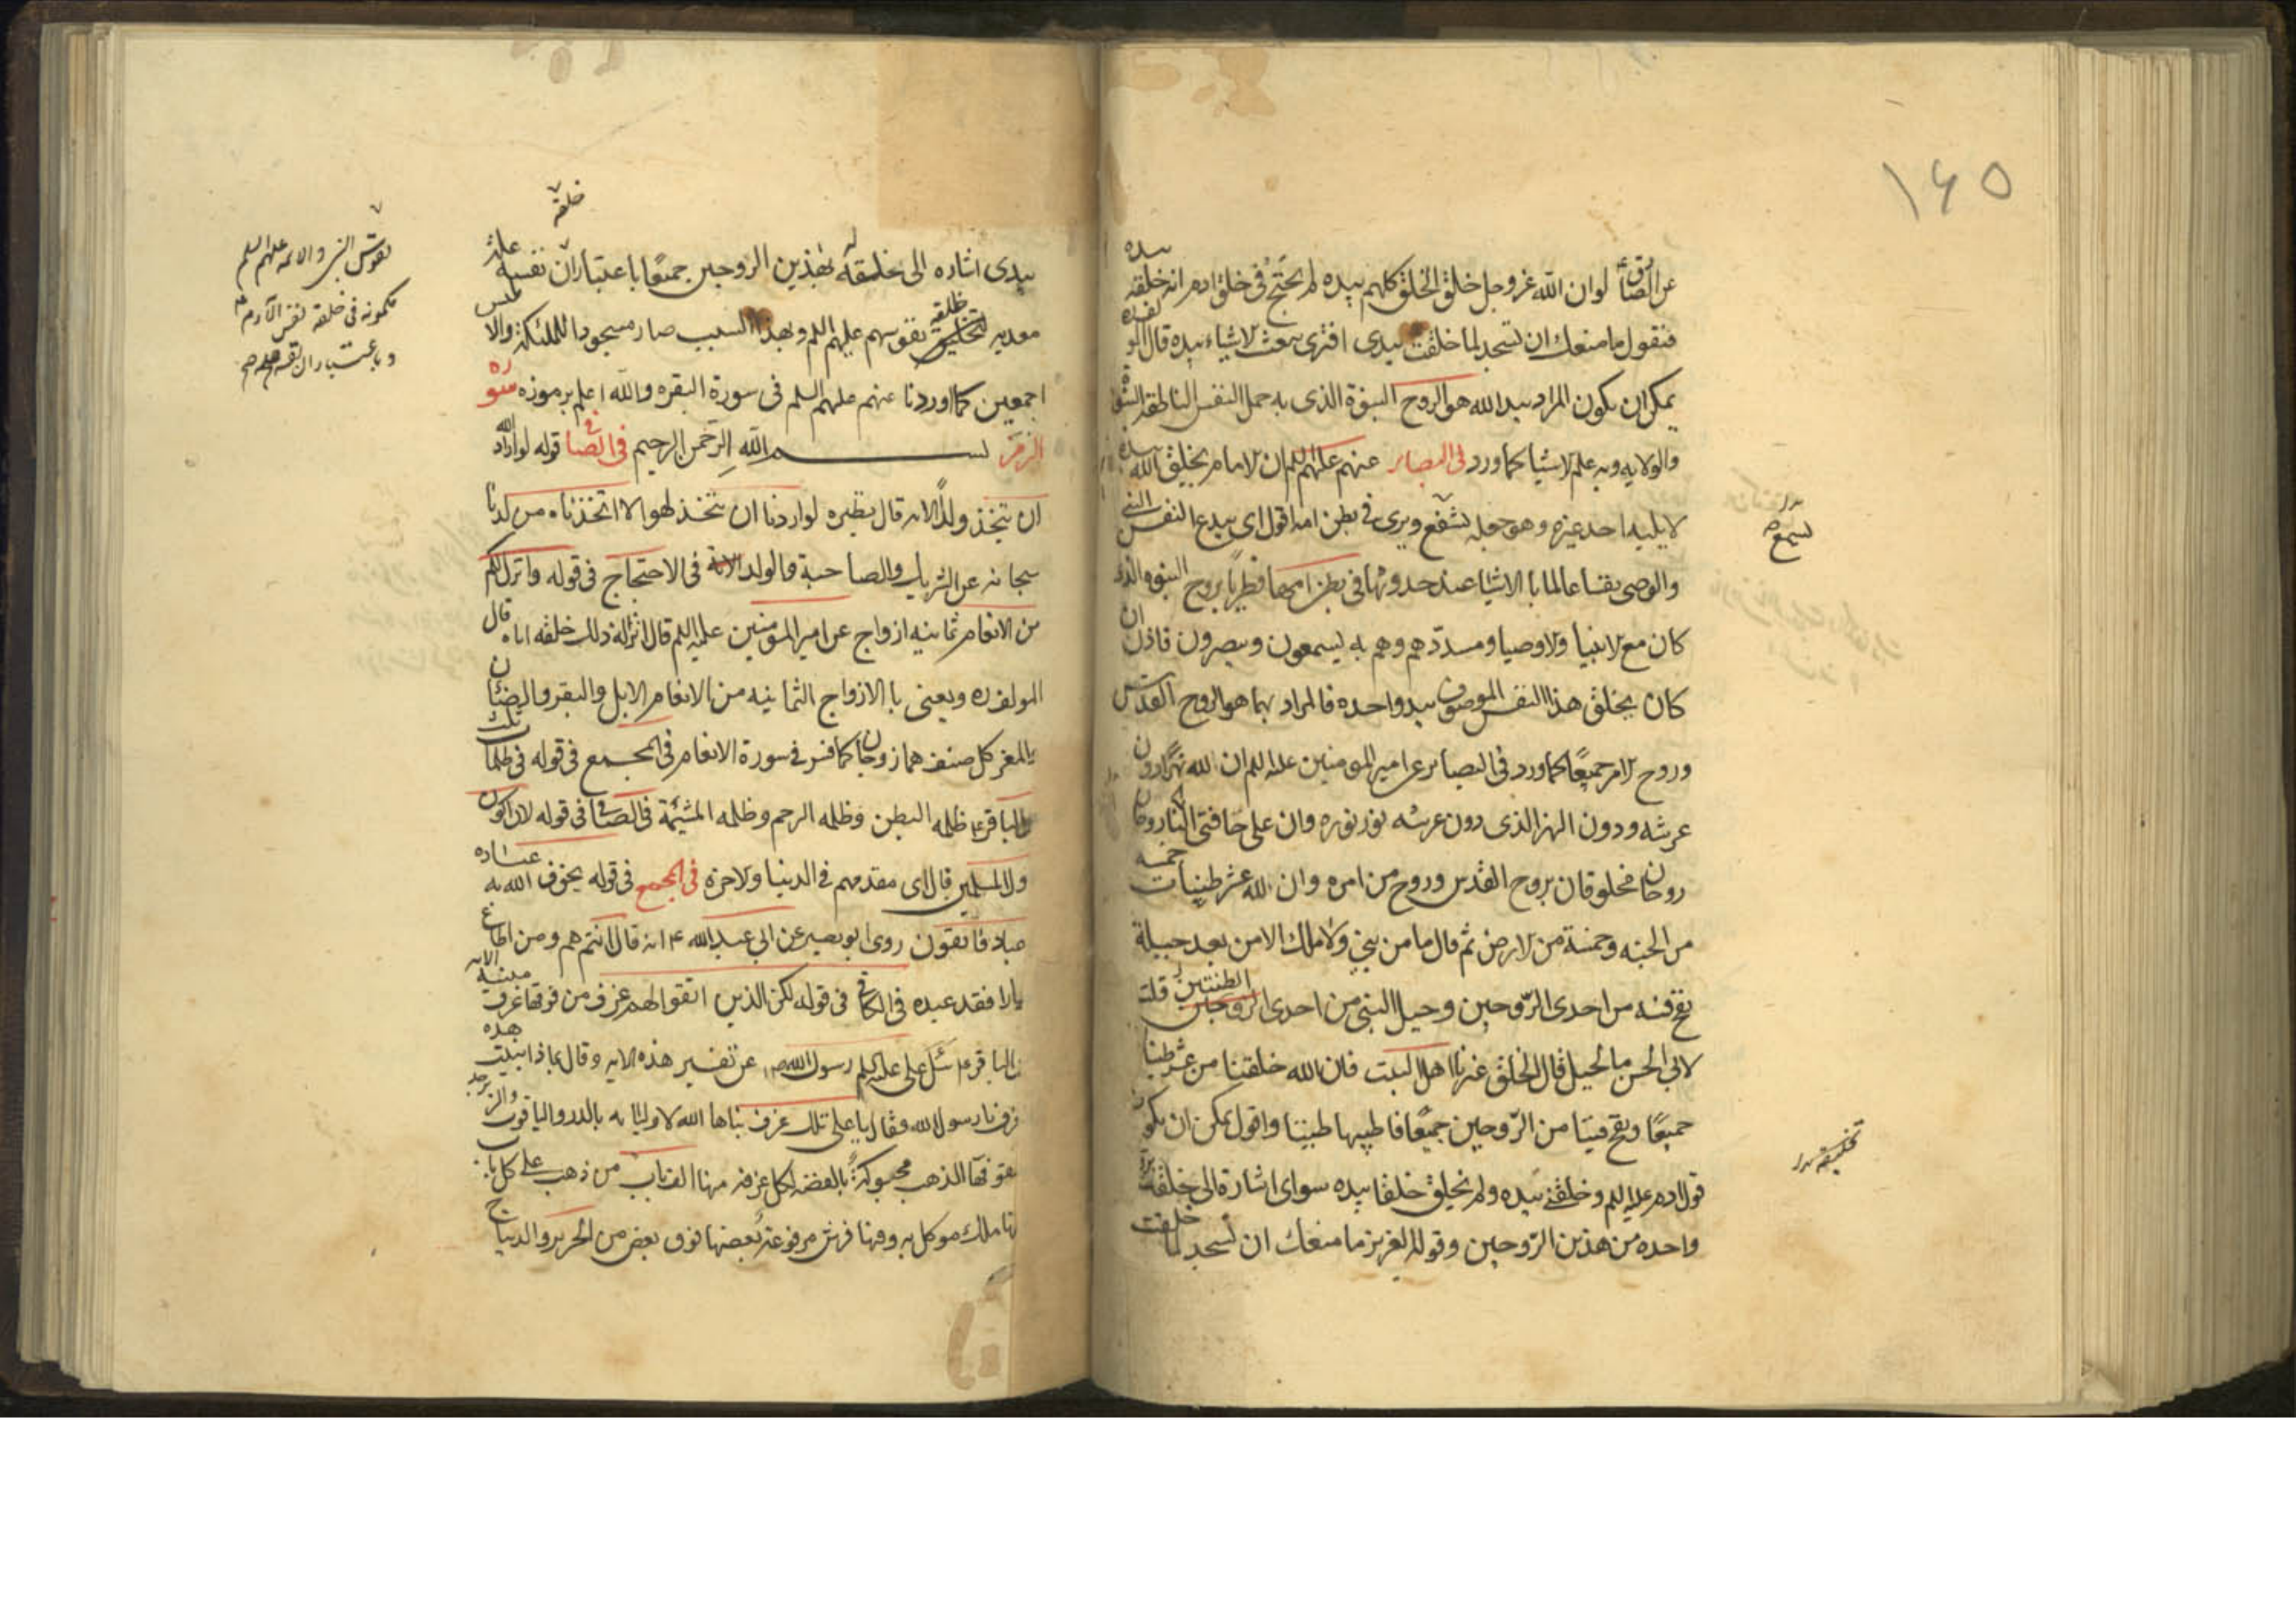 ١٤٥
عن الصادق ع لو ان الله عز وجل خلق الخلق كلهم بيده لم يحتج فى خلق ادم انه خلقه بيده
فنقول ما منعك ان تسجد لما خلقت بيدى افترى يبعث الاشياء بيده قال المولف ره
يمكن ان يكون المراد بيد الله هو الروح النبوة الذى به حمل النفس الناطقه النبوة
والولايه وبه علم الاشيا كما ورد فى البصائر عنهم عليهم السلم ان الامام يخلق الله بيده
لا يليه احد غيره وهو جعله يسمع ويرى فى بطن امه اقول اى يبدع النفس النبى
والوصى نفسا عالما بالاشياء عند حدوثها فى بطن امها فطريا بروح النبوه الذى
كان مع الانبيا والاوصيا ومسددهم وهم به يسمعون ويبصرون فاذن ان
كان يخلق هذا النفس الموصوف بيد واحده فالمراد بهما هو الروح القدس
وروح الامر جميعا كما ورد فى البصاير عن امير المومنين عليه السلم ان لله نهرا دون
عرشه ودون النهر الذى دون عرشه نور نوره وان على حافتى النهر روحان
روحان مخلوقان بروح القدس وروح من امره وان لله عشر طينات خمسه
من الجنه وخمسة من الارض ثم قال ما من نبى ولا ملك الا من بعد جبله
نفخ فيه من احدى الروحين وجبل النبى من احدى الطينتين قلت
لابى الحسن ما الجبل قال الخلق غيرنا اهل البيت فان الله خلقنا من عشر طينات
جميعا ونفخ فينا من الروحين جميعا فاطيبها طيبتا واقول يمكن ان يكون
قول ادم عليه السلم وخلقنى بيده ولم يخلق خلقا بيده سواى اشارة الى خلقه
واحده من هذين الروحين وقوله العزيز ما منعك ان تسجد لما خلقت
يسمع
تخليقه
خلقه
بيدى اشاره الى خلقه له بهذين الروحين جميعا باعتبار ان نفسه علة
معديه لتخليق نفوسهم عليهم السلم وبهذا السبب صار مسجودا للملئكة
اجمعين كما اوردنا عنهم عليهم السلم فى سورة البقره والله اعلم برموزه سوره
الزمر بسم الله الرحمن الرحيم فى الصافى قوله لو اراد الله
ان يتخذ ولدا الايه قال نظيره لو اردنا ان نتخذ لهوا لاتخذناه من لدنا
سبحانه عن الشريك والصاحبة والولد الايه فى الاحتجاج فى قوله وانزل لكم
من الانعام ثمانيه ازواج عن امير المومنين عليه السلم قال انزاله ذلك خلقه اياه قال
المولف ره ويعنى بالازواج الثمانيه من الانعام الابل والبقر والضان
والمعز كل صنف هما زوجان كما فسر فى سورة الانعام فى المجمع فى قوله فى ظلمات ثلث
الباقر ع ظلمه البطن وظلمه الرحم وظلمه المشيمة فى الصافى فى قوله لان اكون
اول المسلمين قال اى مقدمهم فى الدنيا والاخرة فى المجمع فى قوله يخوف الله به عباده
عباد فاتقون روى ابو بصير عن ابى عبد الله ع انه قال انتم هم ومن اطاع
جبارا فقد عبده فى الكافى فى قوله لكن الذين اتقوا لهم غرف من فوقها غرف مبنية الايه
الباقر ع سئل على عليه السلم رسول الله ص عن تفسير هذه الايه وقال بماذا بنيت هذه
غرف يا رسول الله فقال يا على تلك غرف بناها الله لاوليائه بالدر والياقوت والزبرجد
سقوفها الذهب محبوكة بالفضه لكل غرفه منها الف باب من ذهب على كل باب
منها ملك موكل به وفيها فرش مرفوعة بعضها فوق بعض من الحرير والديباج
نفوس النبى والائمه عليهم السلم
مكمونه فى خلقه نفس الادم ع
وباعتبار ان نفسهم